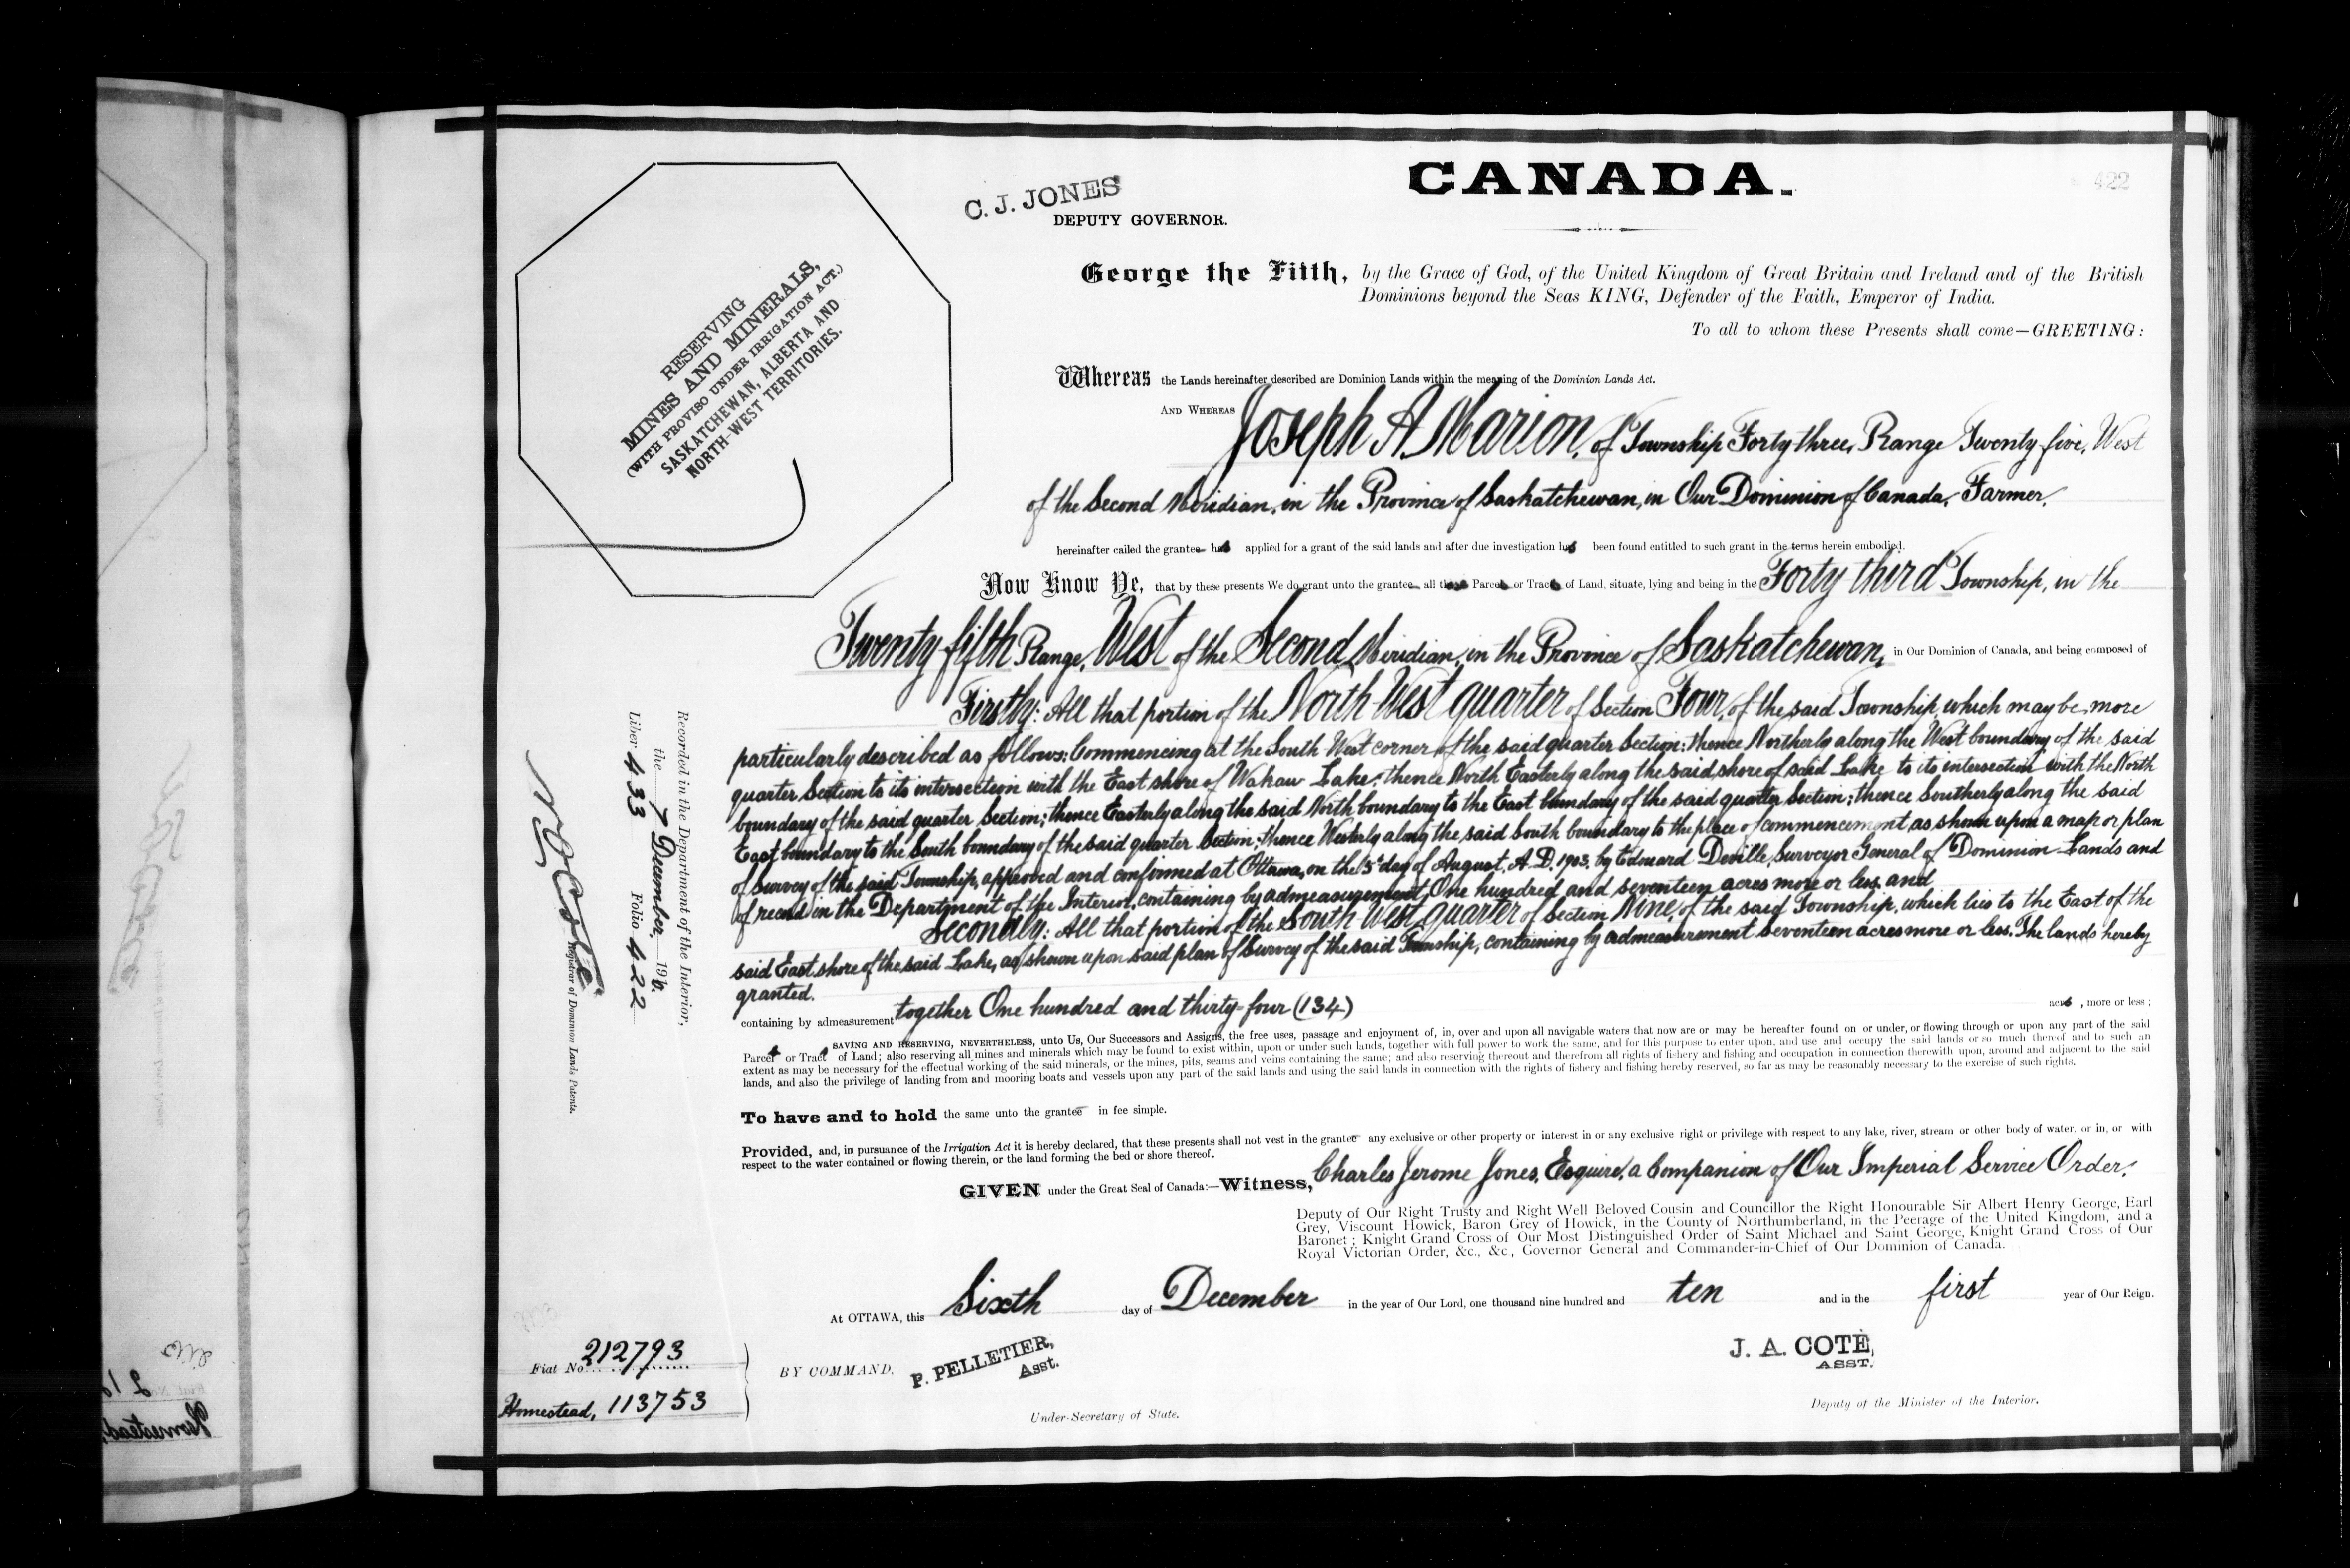 CANADA.
422
C. J. JONES
DEPUTY GOVERNOR.
RESERVING
MINES AND MINERALS,
(WITH PROVISO UNDER IRRIGATION ACT.)
SASKATCHEWAN, ALBERTA AND
NORTH-WEST TERRITORIES.
George the Fifth, by the Grace of God, of the United Kingdom of Great Britain and Ireland and of the British
Dominions beyond the Seas KING, Defender of the Faith, Emperor of India.
To all to whom these Presents shall come—GREETING:
Whereas the Lands hereinafter described are Dominion Lands within the meaning of the Dominion Lands Act.
AND WHEREAS Joseph A. Marion, of Township Forty three, Range Twenty five, West
of the Second Meridian, in the Province of Saskatchewan, in Our Dominion of Canada, Farmer,
hereinafter called the grantee has applied for a grant of the said lands and after due investigation has been found entitled to such grant in the terms herein embodied.
Now Know Ye, that by these presents We do grant unto the grantee all those Parcels or Tracts of Land, situate, lying and being in the Forty third Township, in the
Twenty fifth Range, West of the Second Meridian, in the Province of Saskatchewan, in Our Dominion of Canada, and being composed of
Firstly: All that portion of the North West quarter of Section Four, of the said Township, which may be more
particularly described as follows: Commencing at the South West corner of the said quarter Section: thence Northerly along the West boundary of the said
quarter Section to its intersection with the East shore of Wakaw Lake: thence North Easterly along the said shore of said Lake to its intersection with the North
boundary of the said quarter Section; thence Easterly along the said North boundary to the East boundary of the said quarter Section; thence Southerly along the said
East boundary to the South boundary of the said quarter Section; thence Westerly along the said South boundary to the place of commencement as shown upon a map or plan
of Survey of the said Township, approved and confirmed at Ottawa, on the 3d day of August, A.D. 1903, by Edouard Deville, Surveyor General of Dominion Lands and
of record in the Department of the Interior, containing by admeasurement, One hundred and seventeen acres more or less, and
Secondly: All that portion of the South West quarter of Section Nine, of the said Township, which lies to the East of the
said East shore of the said Lake, as shown upon said plan of Survey of the said Township, containing by admeasurement seventeen acres more or less. The lands hereby
granted.
containing by admeasurement together One hundred and thirty-four (134) acres, more or less;
SAVING AND RESERVING, NEVERTHELESS, unto Us, Our Successors and Assigns, the free uses, passage and enjoyment of, in, over and upon all navigable waters that now are or may be hereafter found on or under, or flowing through or upon any part of the said
Parcels or Tracts of Land; also reserving all mines and minerals which may be found to exist within, upon or under such lands, together with full power to work the same, and for this purpose to enter upon, and use and occupy the said lands or so much thereof and to such an
extent as may be necessary for the effectual working of the said minerals, or the mines, pits, seams and veins containing the same; and also reserving thereout and therefrom all rights of fishery and fishing and occupation in connection therewith upon, around and adjacent to the said
lands, and also the privilege of landing from and mooring boats and vessels upon any part of the said lands and using the said lands in connection with the rights of fishery and fishing hereby reserved, so far as may be reasonably necessary to the exercise of such rights.
To have and to hold the same unto the grantee in fee simple.
Provided, and, in pursuance of the Irrigation Act it is hereby declared, that these presents shall not vest in the grantee any exclusive or other property or interest in or any exclusive right or privilege with respect to any lake, river, stream or other body of water, or in, or with
respect to the water contained or flowing therein, or the land forming the bed or shore thereof.
GIVEN under the Great Seal of Canada:—Witness, Charles Jerome Jones, Esquire, a Companion of Our Imperial Service Order,
Deputy of Our Right Trusty and Right Well Beloved Cousin and Councillor the Right Honourable Sir Albert Henry George, Earl
Grey, Viscount Howick, Baron Grey of Howick, in the County of Northumberland, in the Peerage of the United Kingdom, and a
Baronet; Knight Grand Cross of Our Most Distinguished Order of Saint Michael and Saint George, Knight Grand Cross of Our
Royal Victorian Order, &c., &c., Governor General and Commander-in-Chief of Our Dominion of Canada.
At OTTAWA, this Sixth day of December in the year of Our Lord, one thousand nine hundred and ten and in the first year of Our Reign.
BY COMMAND,
P. PELLETIER,
Asst.
Under-Secretary of State.
J. A. COTÉ,
ASST.
Deputy of the Minister of the Interior.
Fiat No. 212793
Homestead, 113753
Recorded in the Department of the Interior,
the 7 December, 1910.
Liber 433 Folio 422
Registrar of Dominion Lands Patents.